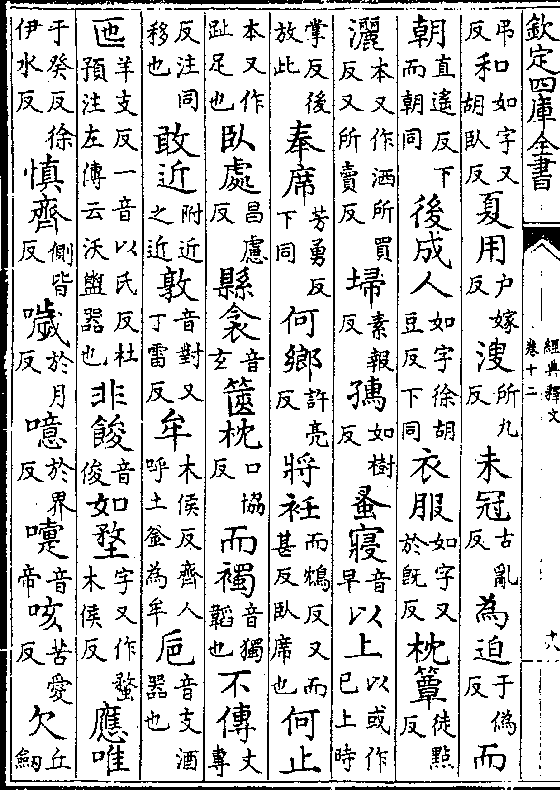 欽定四庫全書
經典釋文
卷十二
十八
弔反和如字又胡臥反夏用戶嫁反溲所九反未冠古亂反為迫于偽反而
朝直遙反下而朝同後成人如字徐胡豆反下同衣服如字又於既反枕簟徒點反
灑本又作洒所買反又所賣反埽素報反孺如樹反蚤寢音早以上以或作已上時
掌反後放此奉席芳勇反下同何鄉許亮反將衽而鴆反又而甚反臥席也何止
本又作趾足也臥處昌慮反縣衾音玄篋枕口協反而襡音獨韜也不傳丈專
反注同移也敢近附近之近敦音對又丁雷反牟木侯反齊人呼土釜為牟巵音支酒器也
匜羊支反一音以氏反杜預注左傳云沃盥器也非餕音俊如堥字又作蝥木侯反應唯
于癸反徐伊水反慎齊側皆反噦於月反噫於界反嚏音帝咳苦愛反欠丘劒